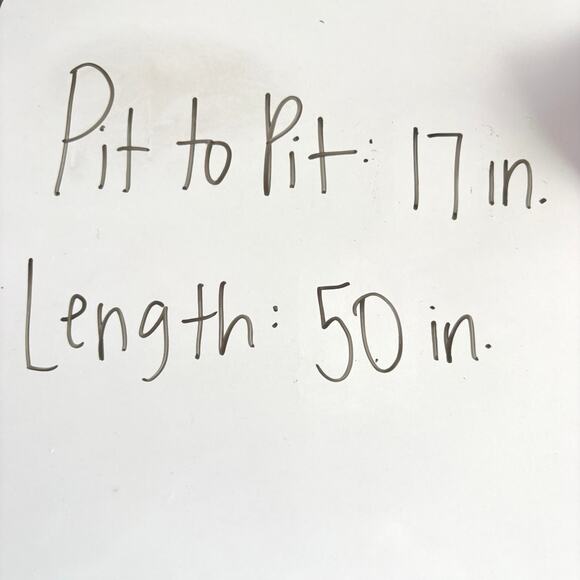 Pit to Pit: 17 in.
Length: 50 in.